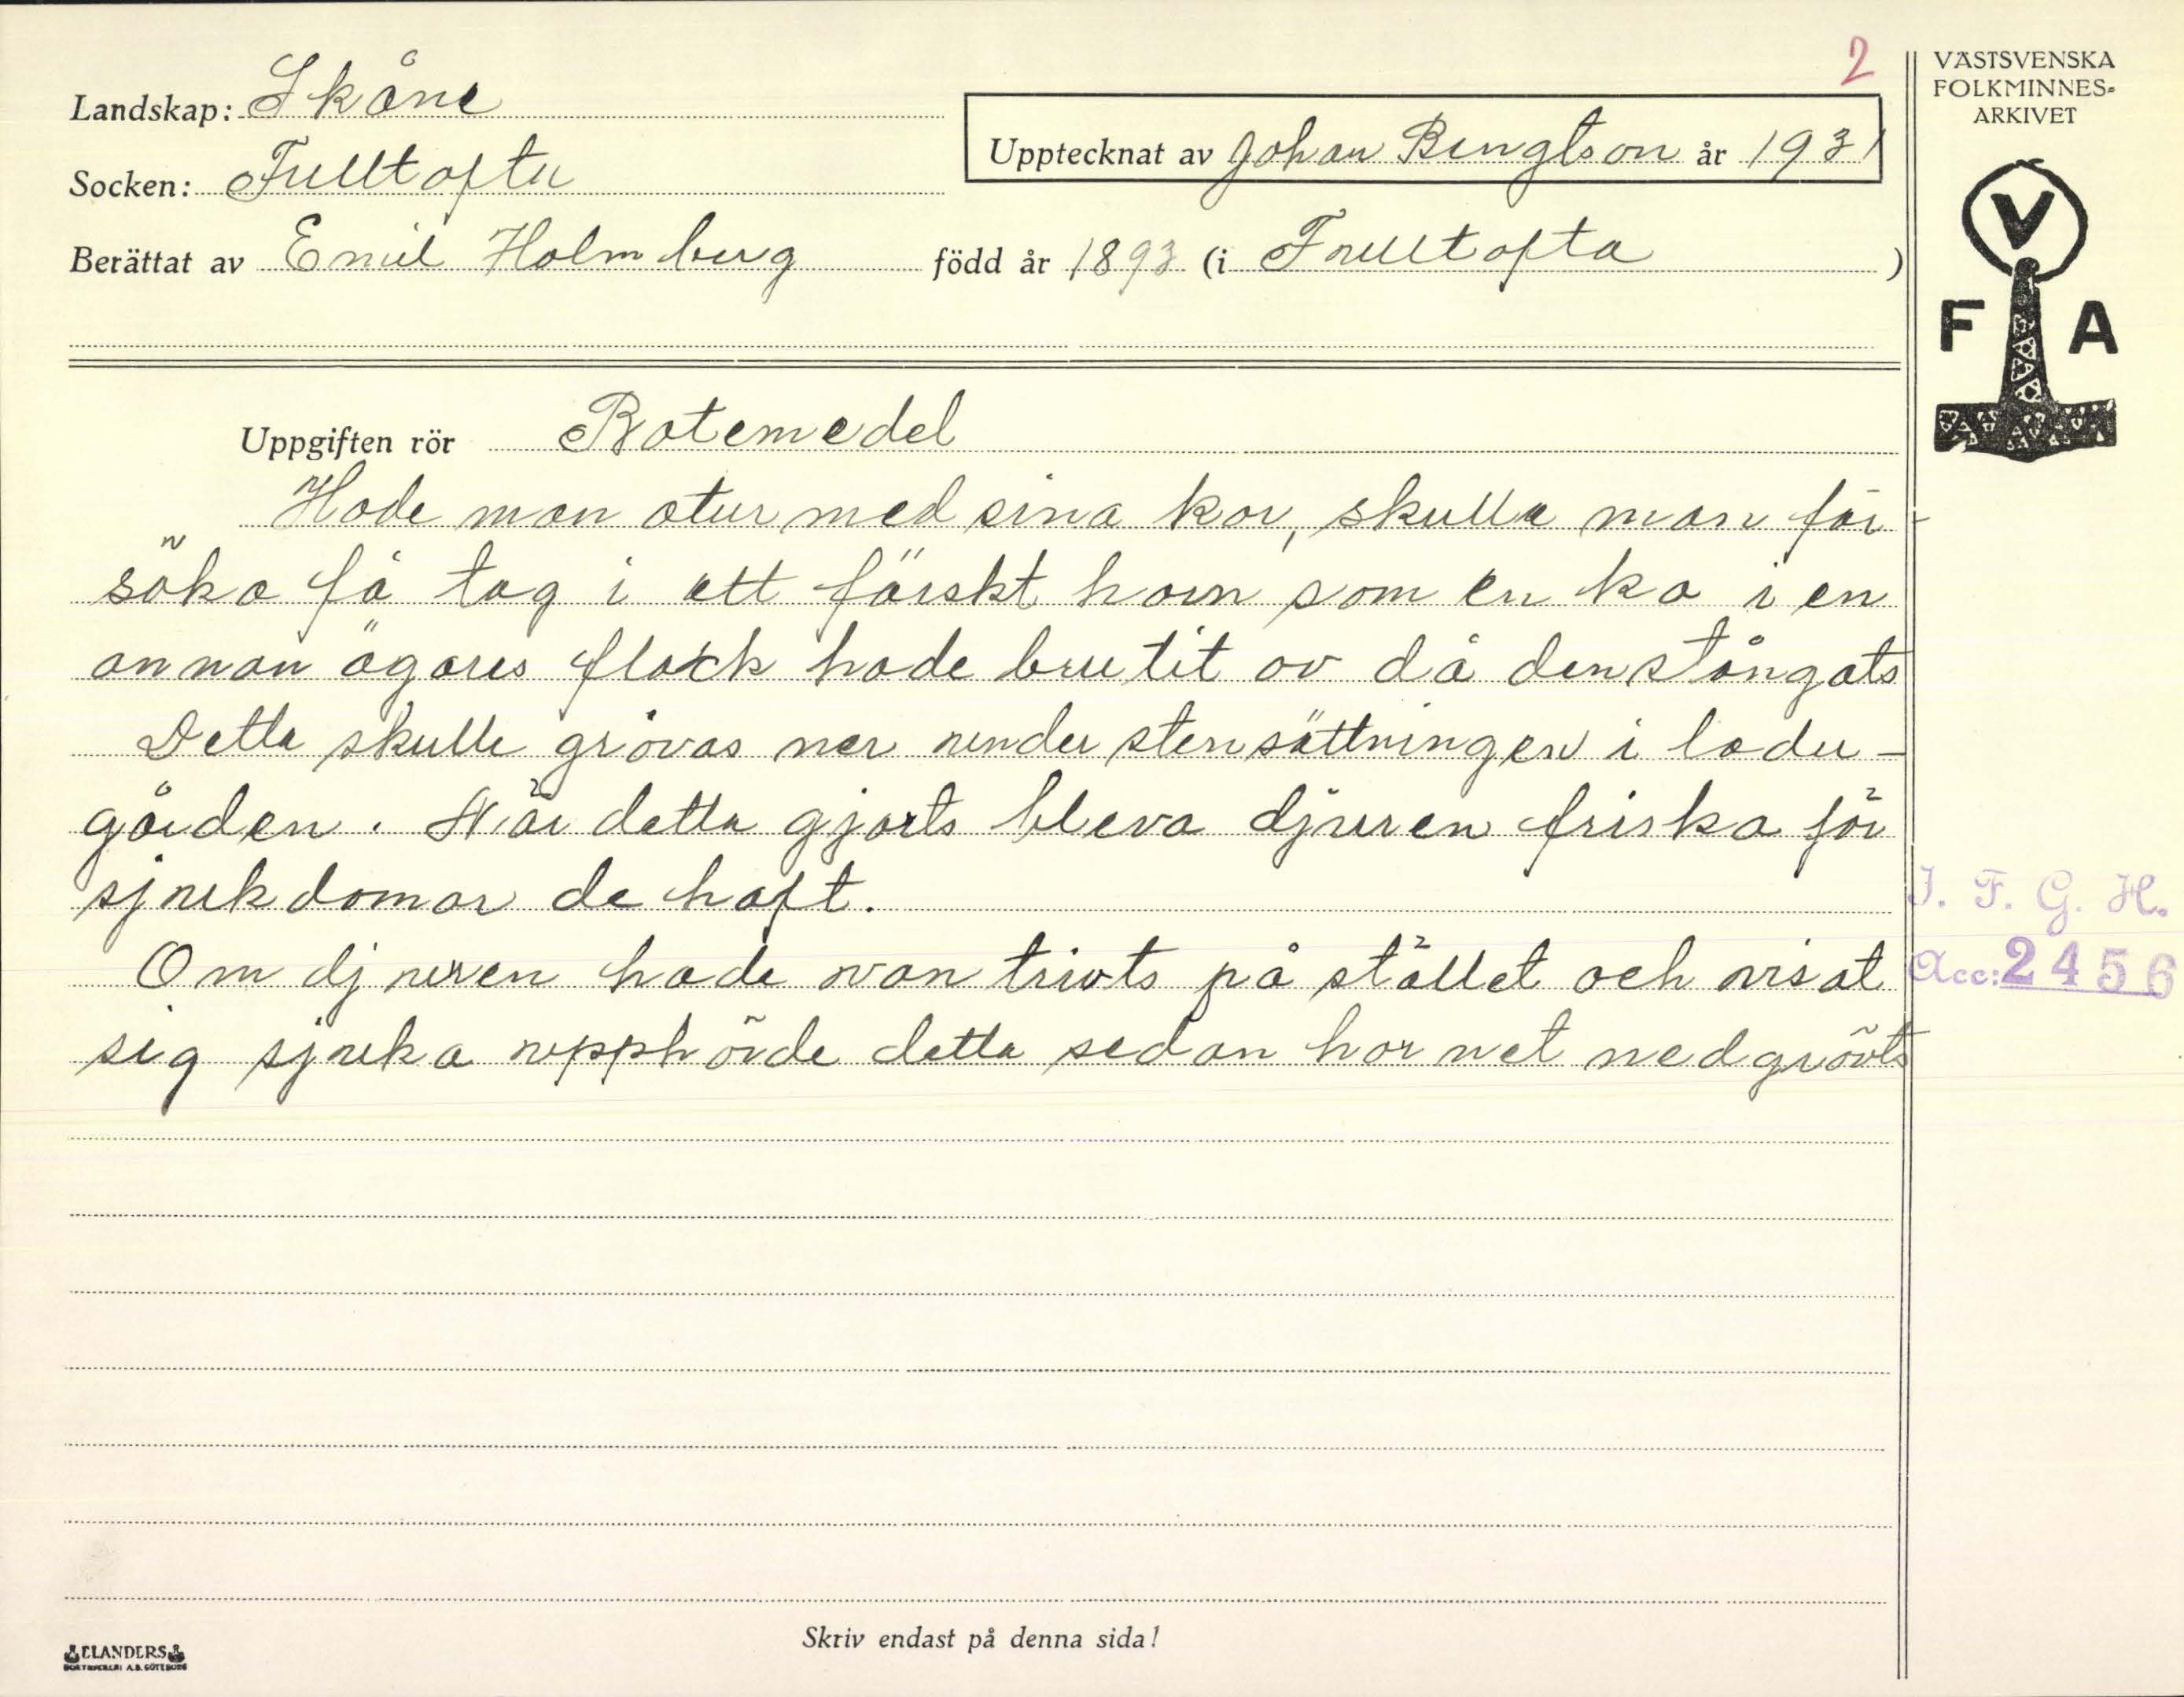 2
VÄSTSVENSKA
FOLKMINNES-
ARKIVET
Landskap: Skåne
Upptecknat av Johan Bengtson år 1931
Socken: Fulltofta
Berättat av Emil Holmberg född år 1893 (i Fulltofta)
V
F A
Uppgiften rör Botemedel
Hade man otur med sina kor, skulle man för-
söka få tag i ett färskt horn som en ko i en
annan ägares flock hade brutit av då den stångats
Detta skulle grävas ner under stensättningen i ladu-
gården. När detta gjorts bleva djuren friska för
sjukdomar de haft.
I. F. G. H.
Om djuren hade van trivts på stället och visat
Acc: 2456
sig sjuka upphörde detta sedan hornet nedgrävts
Skriv endast på denna sida!
ELANDERS
BOKTRYCKERI A.B. GÖTEBORG